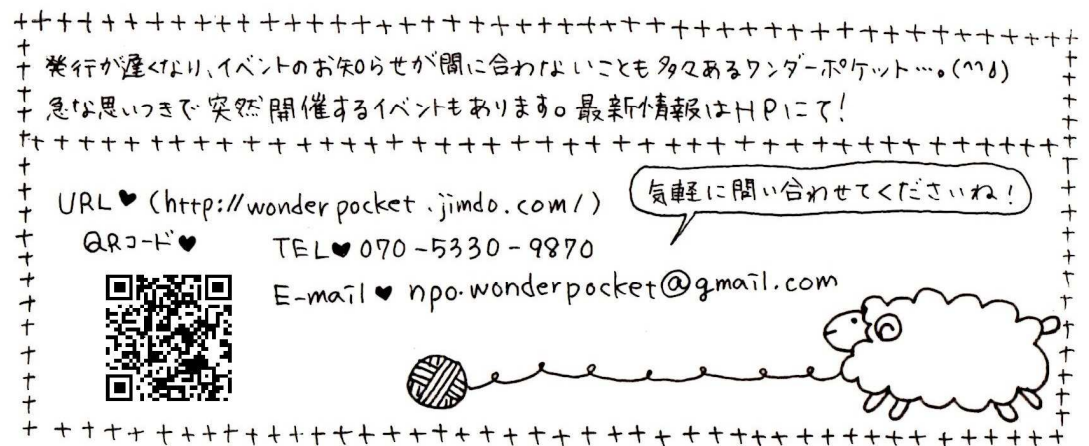 発行が遅くなり、イベントのお知らせが間に合わないことも多々あるワンダーポケット…。(^^;)
急な思いつきで突然開催するイベントもあります。最新情報はHPにて!
気軽に問い合わせてくださいね!
URL♥(http://wonderpocket.jimdo.com/)
QRコード♥
TEL♥070-5330-9870
E-mail♥npo.wonderpocket@gmail.com